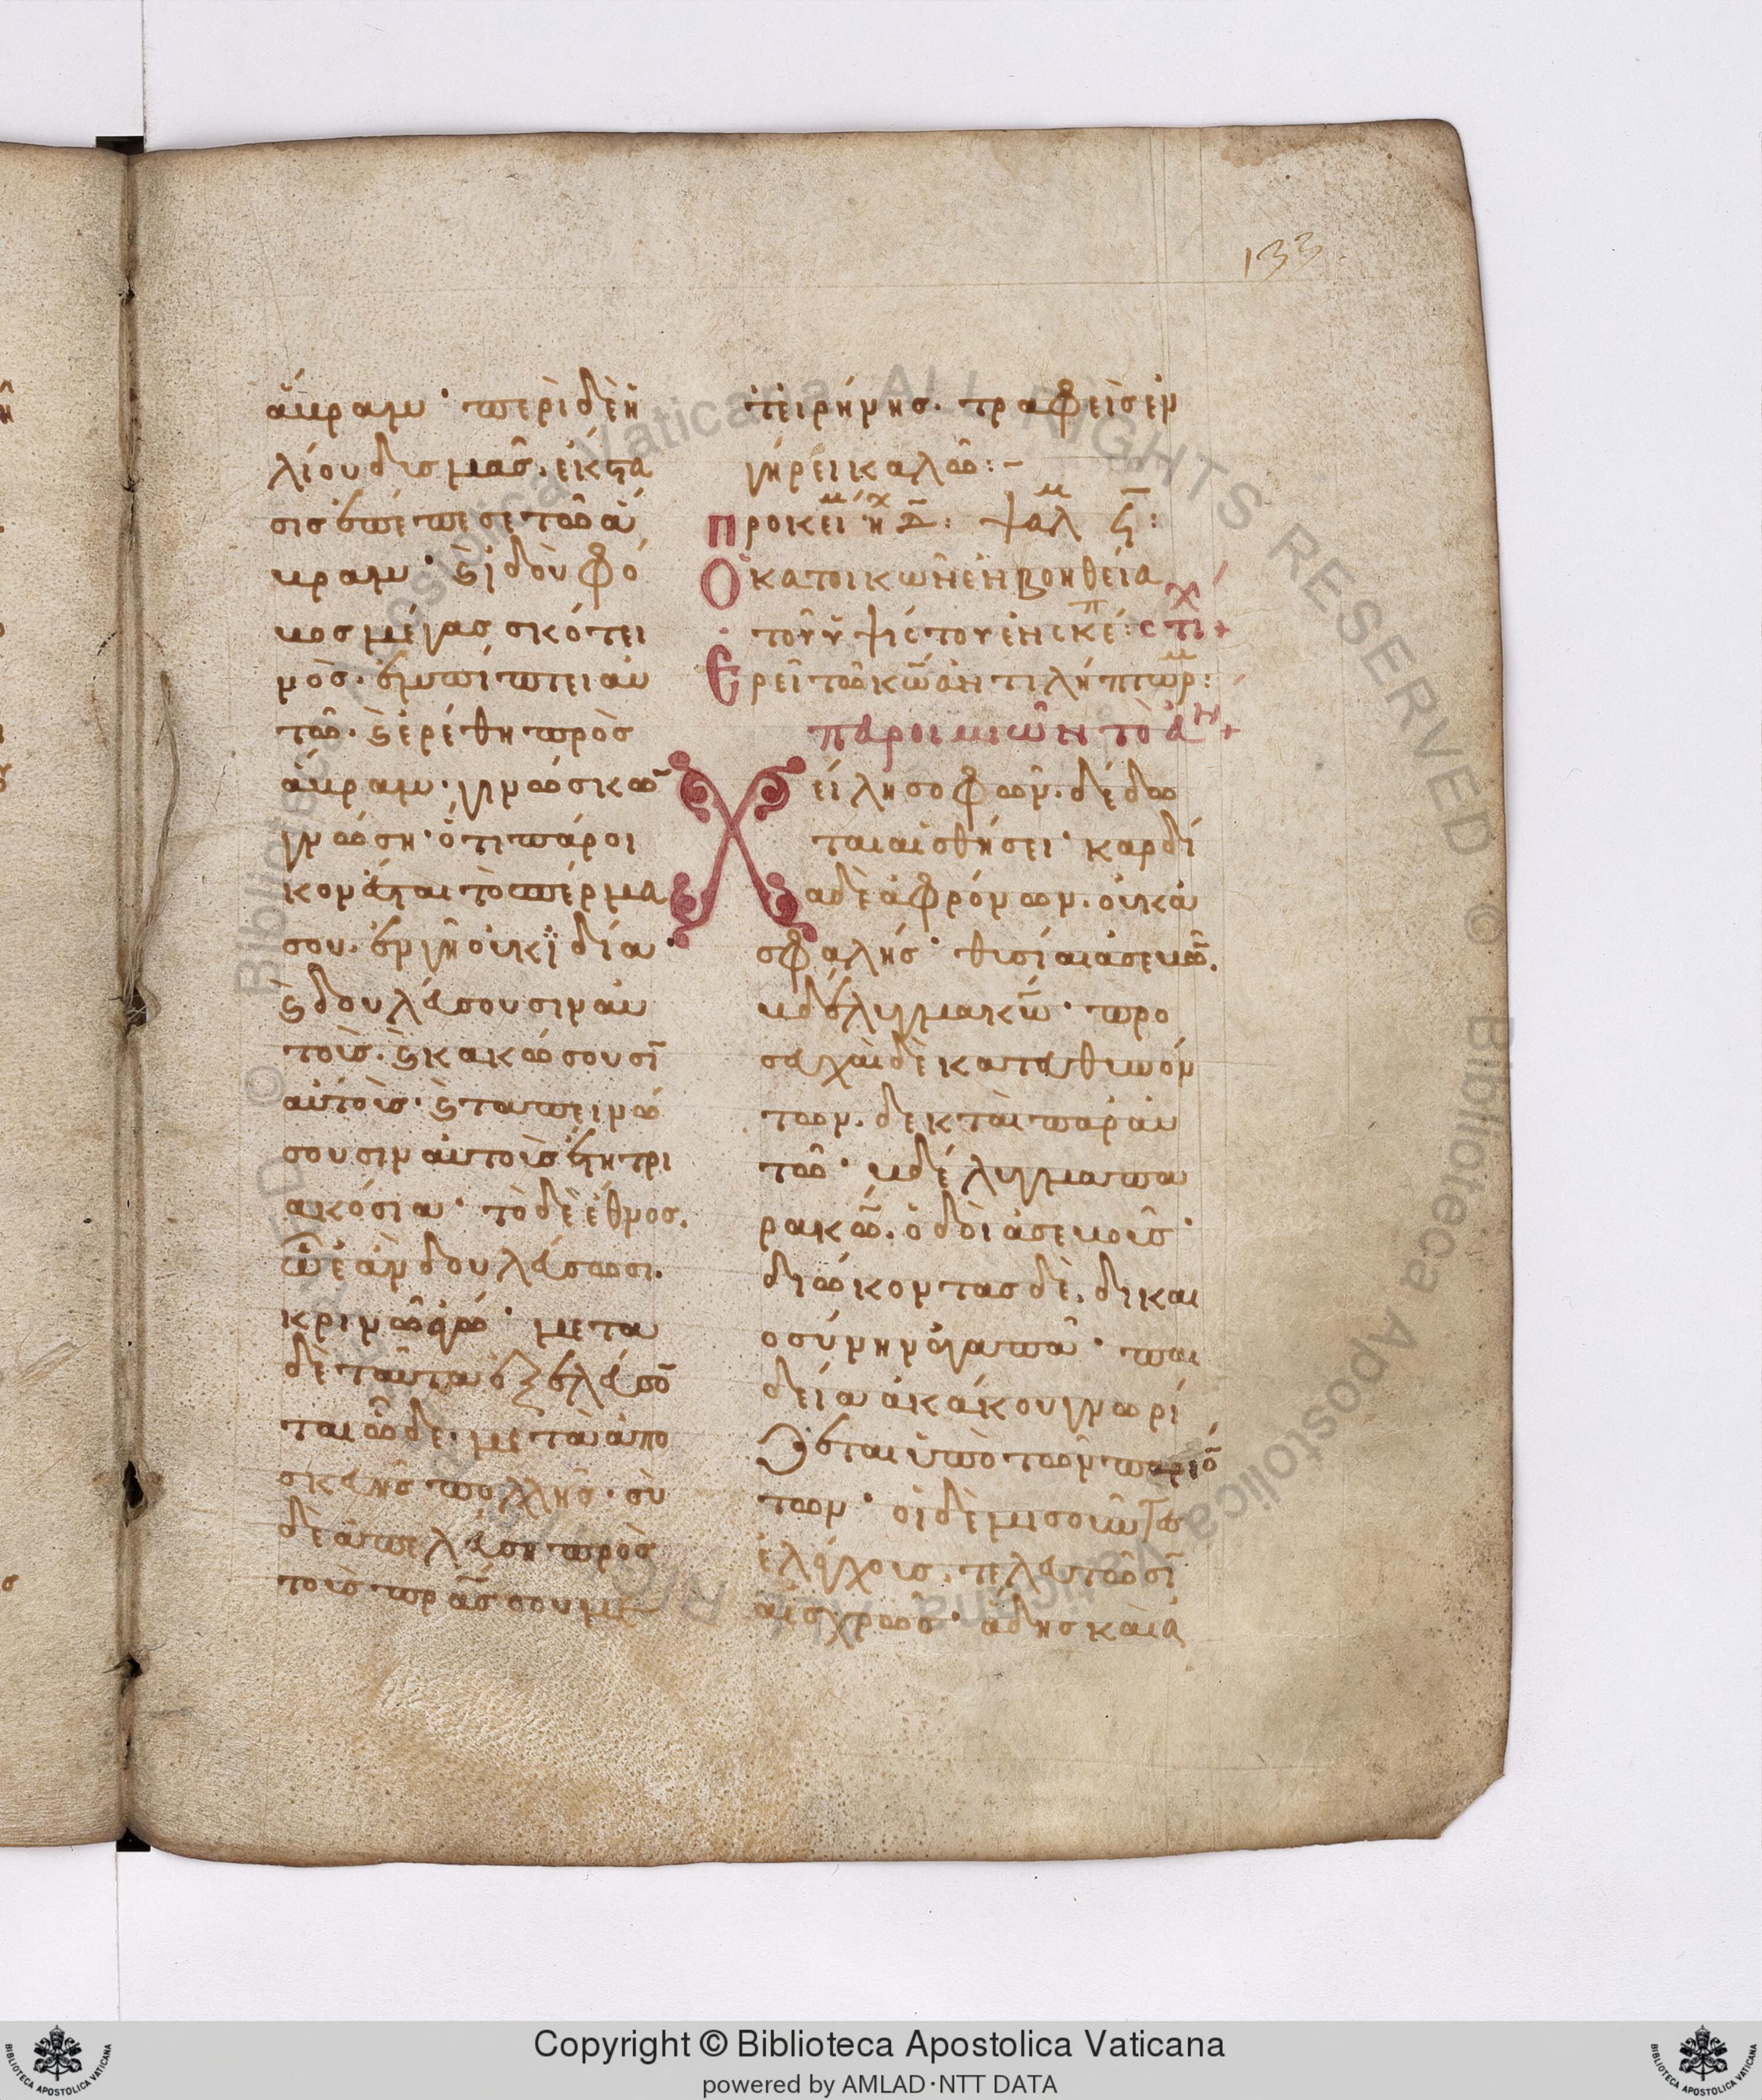 133
ἅβραμ· περὶ δὲ ἡ
λίου δυσμὰς. ἔκστα
σις ἐπέπεσε τῶ ἅ
βραμ· καὶ ἰδοὺ φό
βος μέγας σκότει
νὸς. ἐμπίπτει αὐ
τῶ. καὶ ἐρέθη πρὸς
ἅβραμ· γινώσκω̄
γνώση· ὅτι πάροι
κον ἔσται τὸ σπέρμα
σου. ἐν γῆ οὐκ ϊδία·
καὶ δουλεύσουσιν αὐ
τοὺς. καὶ κακώσουσῑ
αὐτοὺς· καὶ ταπεινώ
σουσιν αὐτοὺς ἔτη τρι
ακόσια· τὸ δὲ ἔθνος.
ὧ ἐὰν δουλεύσωσι.
κρινῶ ἐγώ· μετα
δὲ ταῦτα ἐξελεύσο̄
ται ὧδε. μετὰ ἀπο
σκευῆς πολλῆς· σὺ
δὲ ἀπελεύση πρὸς
τοὺς πρ̄άς σου με
τ εἰρήνης. τραφεὶς ἐν
γήρει καλῶ:–
προκείμ ἠχ δ̄: ψαλμ ϟ̄:
Ὁ κατοικῶν ἐν βοηθεία
τοῦ ὑψίστου ἐν σκέπ: στίχ+
Ἐρεῖ τῶ κω̄ ἀντιλήπτωρ μ:
παροιμιῶν τὸ ἀν+
Χείλη σοφῶν. δέδε
ται αἰσθήσει· καρδί
α δὲ ἀφρόνων. οὐκ ἀ
σφαλής· θυσίαι ἀσεβῶ̄.
βδέλυγμα κω̄· προ
σευχαὶ δὲ κατευθυνόν
των. δεκταὶ παρ αὐ
τῶ· βδέλυγμα πα
ρα κω̄. ὁδοὶ ἀσεβοῦς·
διώκοντας δὲ. δικαι
οσύνην ἀγαπᾶ· παι
δεία ἀκάκου γνωρί
ζεται ὑπὸ τῶν παριό̄
των· οἱ δὲ μισοῦντες
ἐλέγχους. τελευτῶσῑ
αἰσχρῶς· ἅδης καὶ ἀ
Copyright © Biblioteca Apostolica Vaticana
powered by AMLAD·NTT DATA